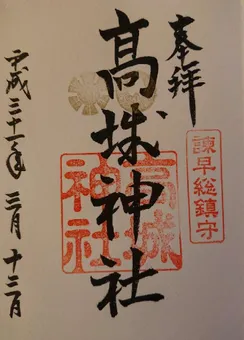 奉拝
諫早総鎮守
高城神社
高城神社
平成三十一年三月十三日